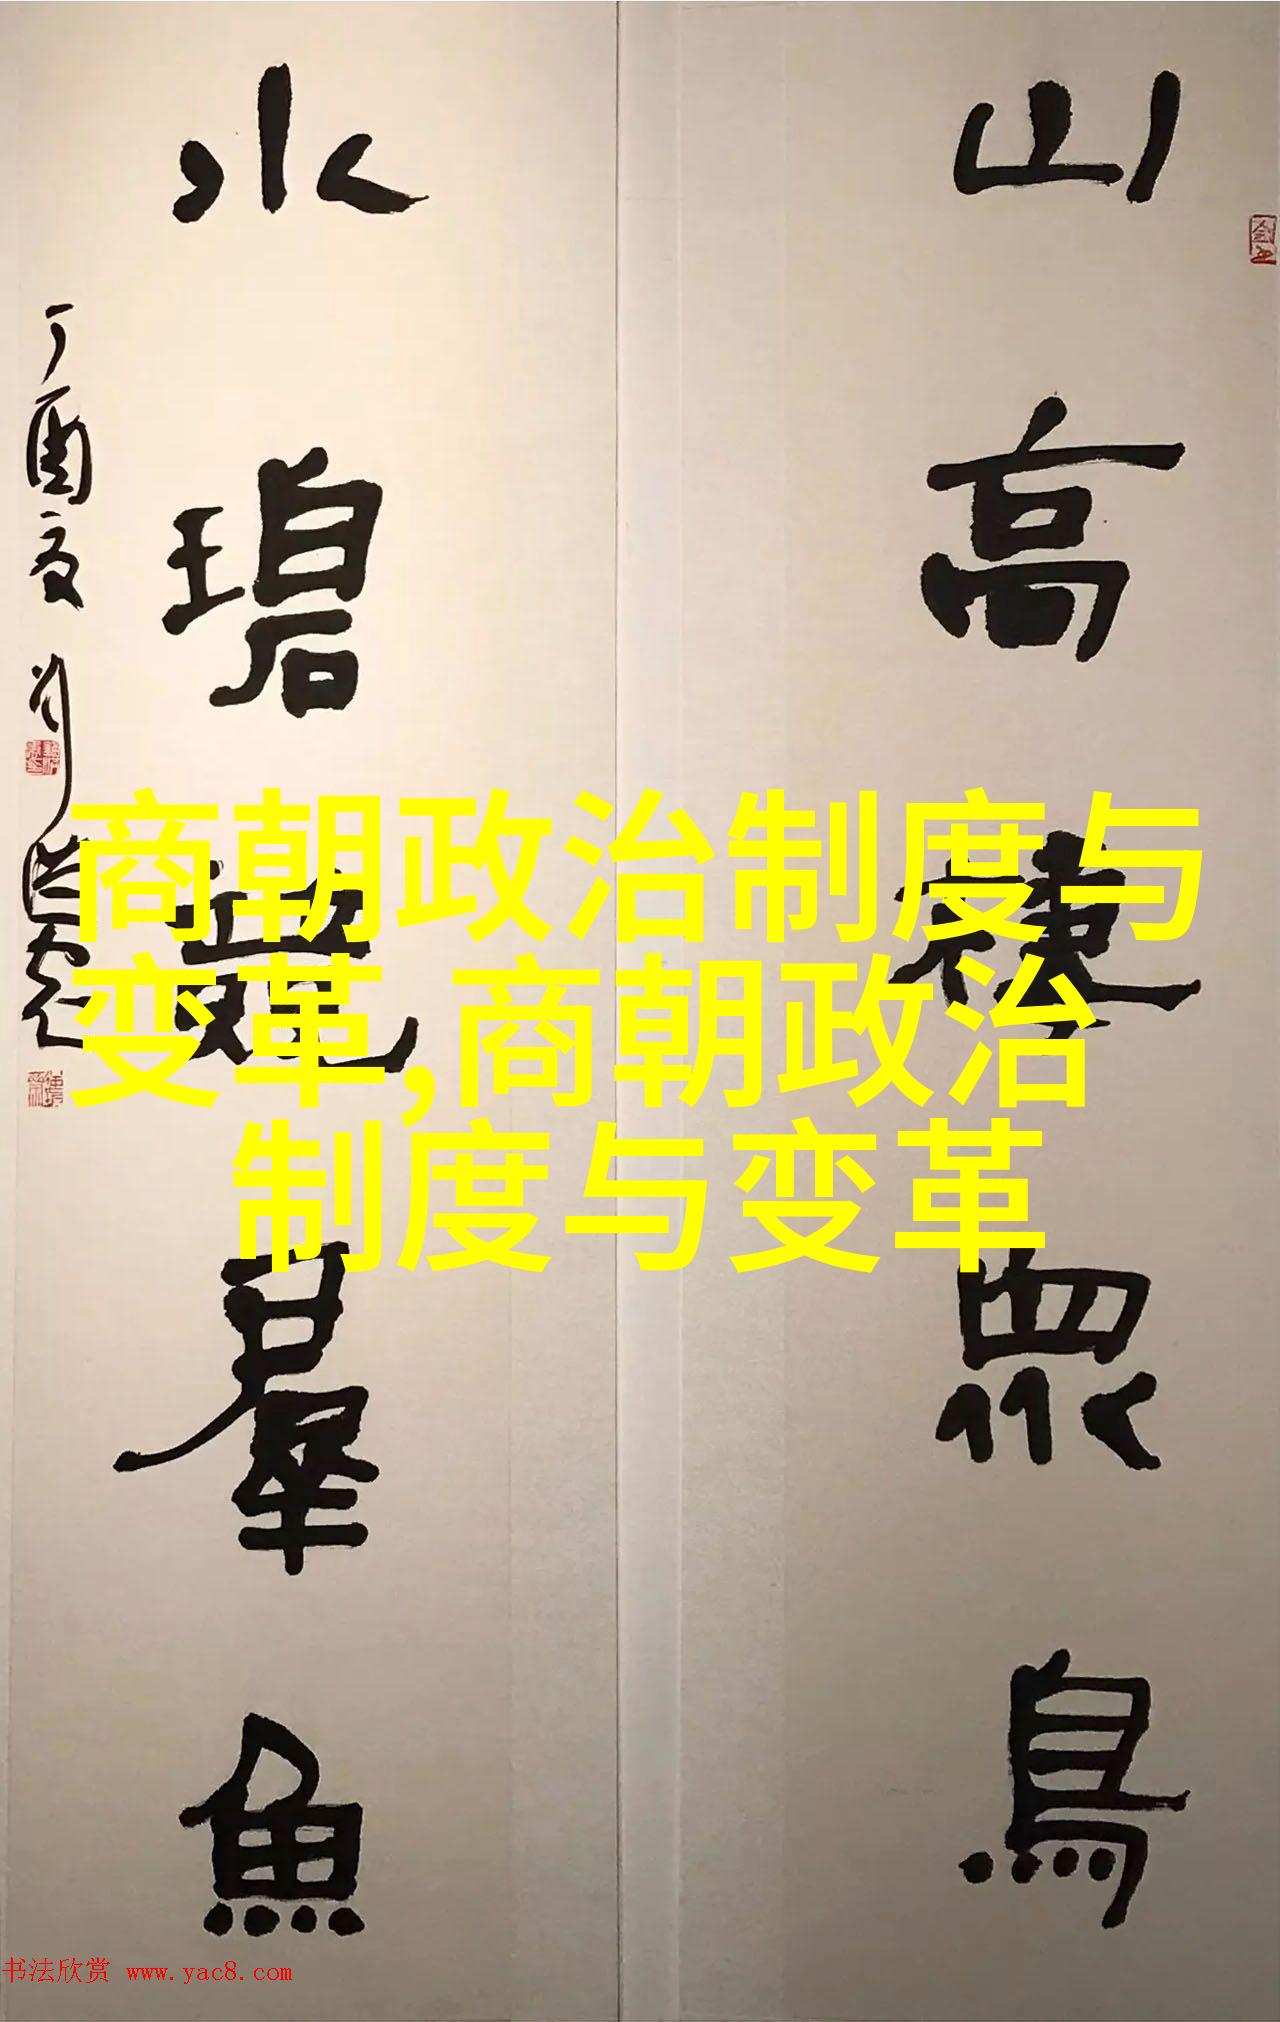 山高棲眾鳥
水碧羣魚
丁酉夏 刘
商朝政治制度与
变革,商朝政治
制度与变革
书法欣赏 www.yac8.com